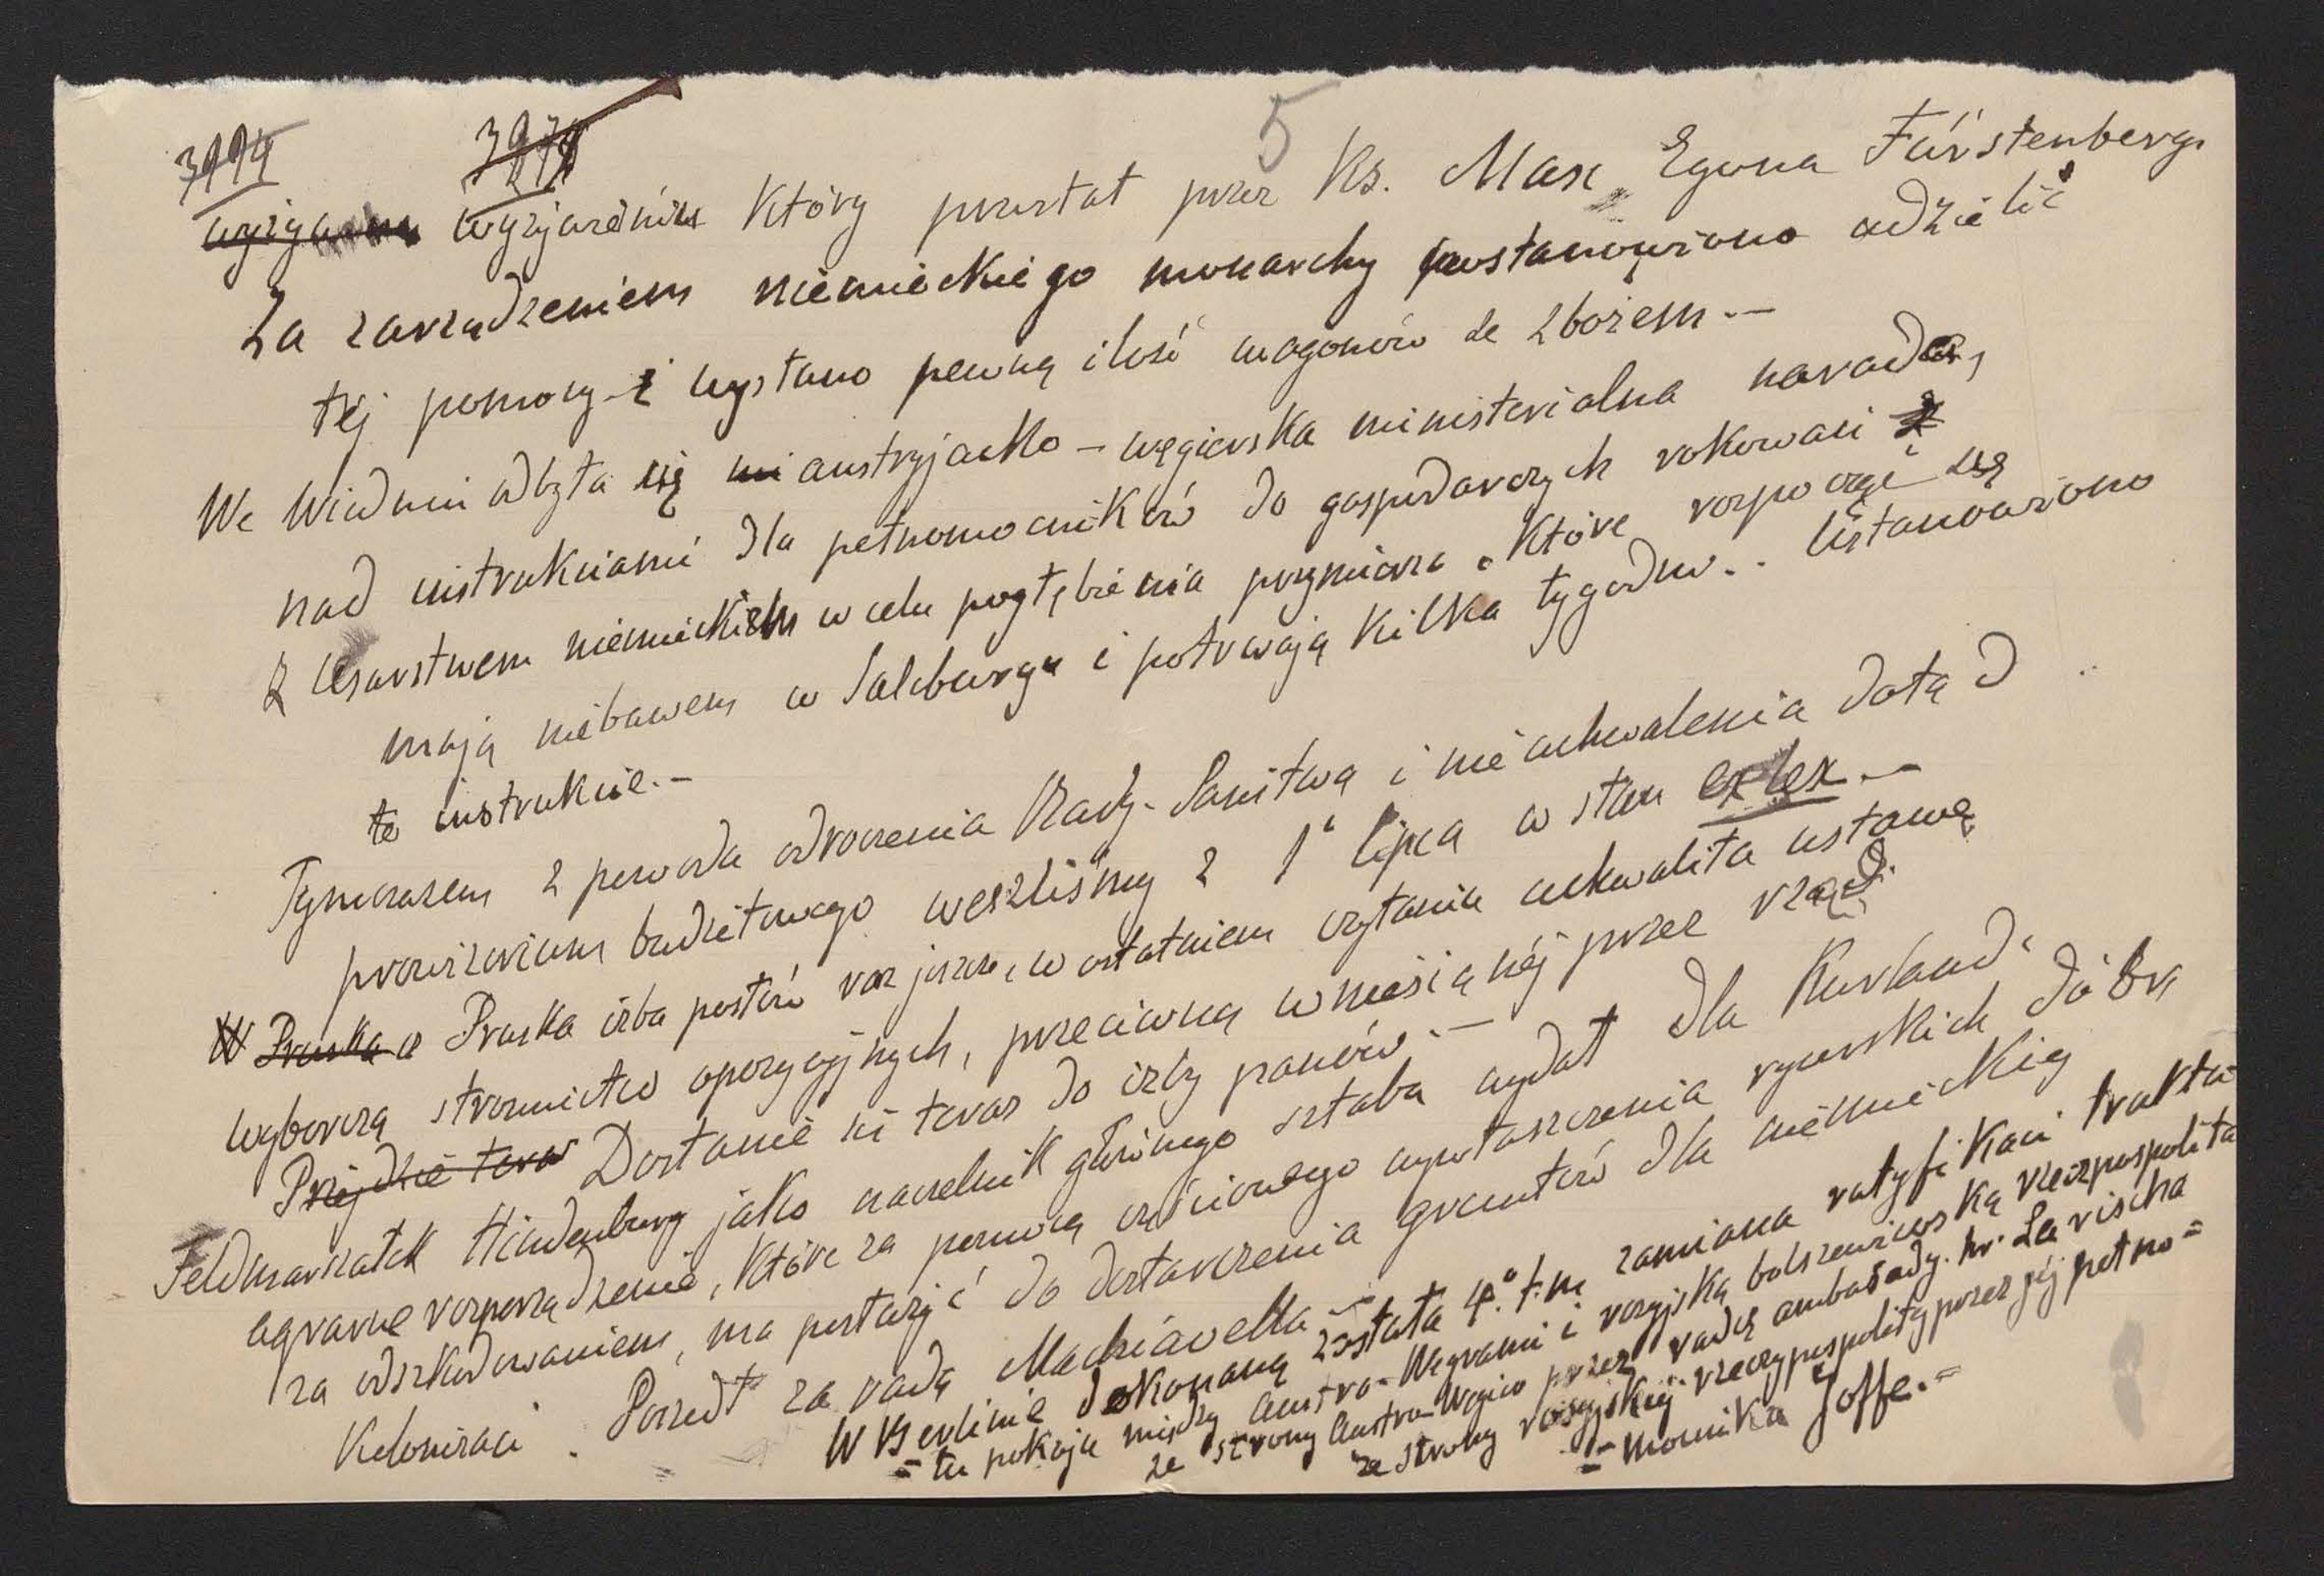 3994 3974 5
wyżywienia wyżywienia który powstał przez Ks. Max Egona Fürstenberga
Za zarządzeniem niemieckiego monarchy postanowiono udzielić
tej pomocy i wysłano pewną ilość wagonów ze zbożem.—
We Wiedniu odbyła się austryjacko – węgierska ministerialna narada,
nad instrukciami dla pełnomocników do gospodarczych rokowań
z Cesarstwem niemieckiem w celu pogłębienia przymierza. Które rozpocząć się
mają niebawem w Salcburgu i potrwają kilka tygodni.. Ustanowiono
te instrukcie.—
Tymczasem z powodu odroczenia Rady-Państwa i nie uchwalenia dotąd
prowizorium budżetowego weszliśmy z 1° lipca w stan exlex.—
W Pruska a Pruska izba posłów raz jeszcze, w ostatniem czytaniu uchwaliła ustawę
wyborczą stronnictw opozycyjnych, przeciwną wnesionéj przez rząd.
Prẓéjdzie teraz Dostanie się teraz do izby panów.—
Feldmarszałek Hindenburg jako naczelnik głównego sztabu wydał dla Kurlandi
agrarne rozporządzenie, które za pomocą częściowego wywłaszczenia rycerskich dóbr
za odszkodowaniem, ma posłużyć do dostarczenia gruntów dla niemieckiej
Kolonizaci. Poszedł za radą Machiavella —
W Berlinie dokonaną została 4.° t.m zamiana ratyfikaci trakta-
= tu pokoju między Austro-Węgrami i rosyjską bolszewicką rzeczpospolitą
ze strony Austro-Węgier przez radcę ambasady. hr. Larischa
ze strony rosyjskiéj rzeczypospolitéj przez jéj pełno=
= mocnika Joffe.=